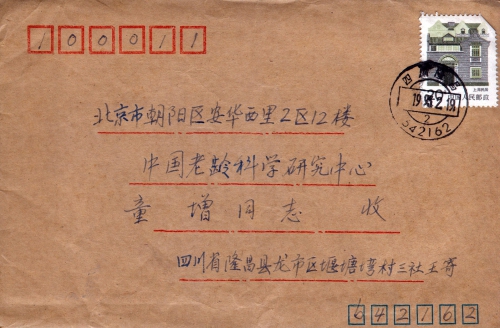 100011
北京市朝阳区安华西里2区12楼
中国老龄科学研究中心
童增同志 收
四川省隆昌县龙市区堰塘湾村三社王寄
642162
中国人民邮政
642162